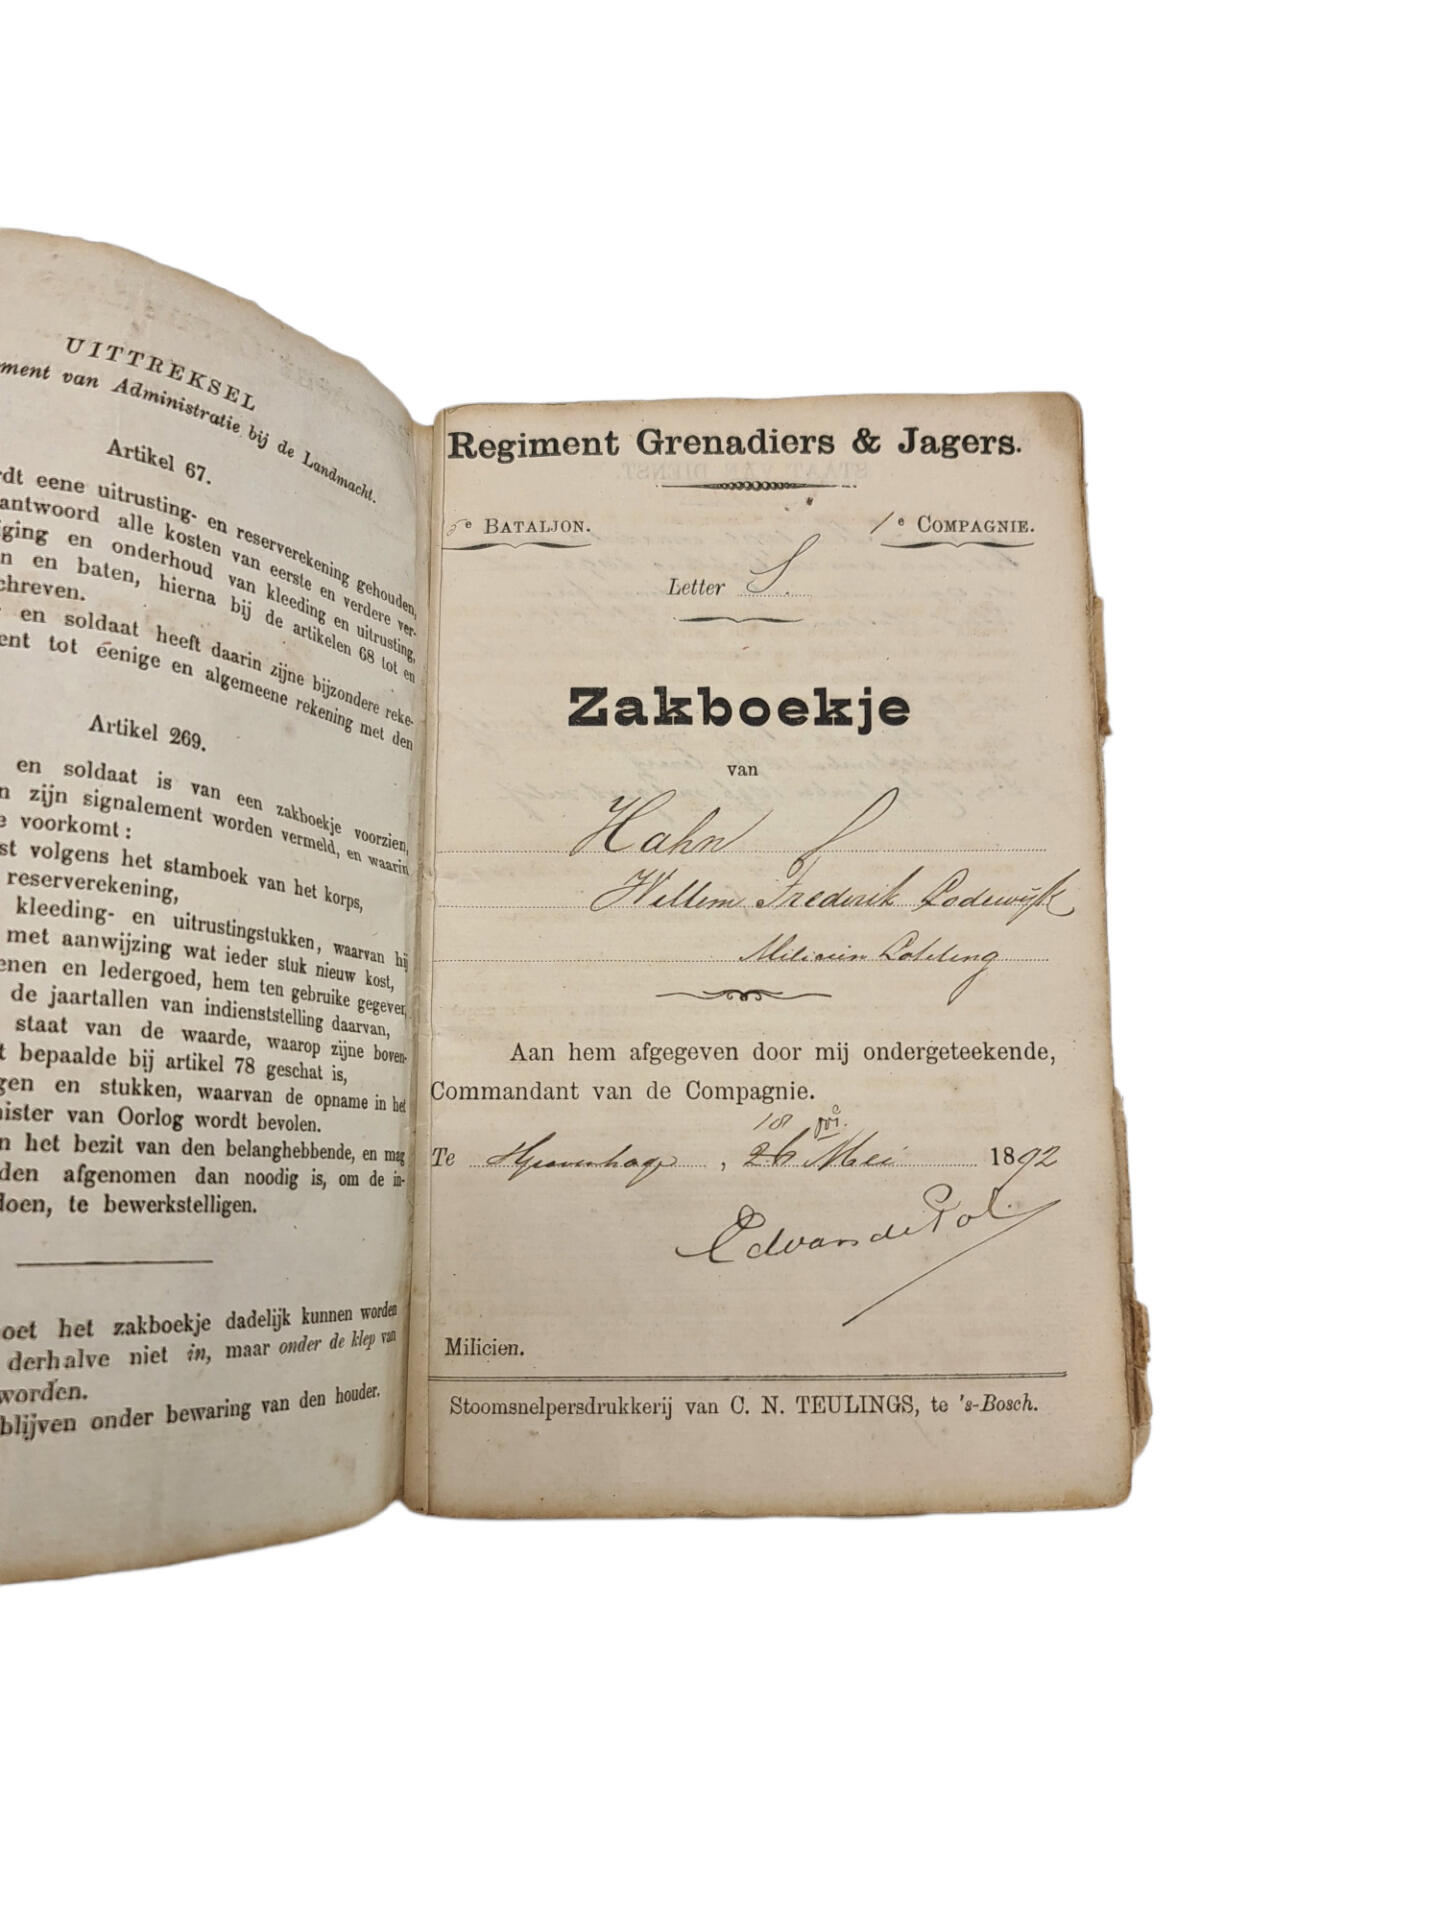 UITTREKSEL
ment van Administratie bij de Landmacht.
Artikel 67.
rdt eene uitrusting- en reserverekening gehouden,
antwoord alle kosten van eerste en verdere ver-
ging en onderhoud van kleeding en uitrusting,
n en baten, hierna bij de artikelen 68 tot en
chreven.
en soldaat heeft daarin zijne bijzondere reke-
ent tot éenige en algemeene rekening met den
Artikel 269.
en soldaat is van een zakboekje voorzien,
n zijn signalement worden vermeld, en waarin
e voorkomt:
st volgens het stamboek van het korps,
reserverekening,
kleeding- en uitrustingstukken, waarvan hij
met aanwijzing wat ieder stuk nieuw kost,
enen en ledergoed, hem ten gebruike gegeven,
de jaartallen van indienststelling daarvan,
staat van de waarde, waarop zijne boven-
t bepaalde bij artikel 78 geschat is,
gen en stukken, waarvan de opname in het
nister van Oorlog wordt bevolen.
n het bezit van den belanghebbende, en mag
den afgenomen dan noodig is, om de in-
doen, te bewerkstelligen.
oet het zakboekje dadelijk kunnen worden
derhalve niet in, maar onder de klep van
worden.
blijven onder bewaring van den houder.
Regiment Grenadiers & Jagers.
5e BATALJON. 1e COMPAGNIE.
Letter S.
Zakboekje
van
Hahn
Willem Frederik Lodewijk
Milicien Loteling
Aan hem afgegeven door mij ondergeteekende,
Commandant van de Compagnie.
18
Te 'sGravenhage, 26 Mei 1892
Ed van de Pol.
Milicien.
Stoomsnelpersdrukkerij van C. N. TEULINGS, te 's-Bosch.